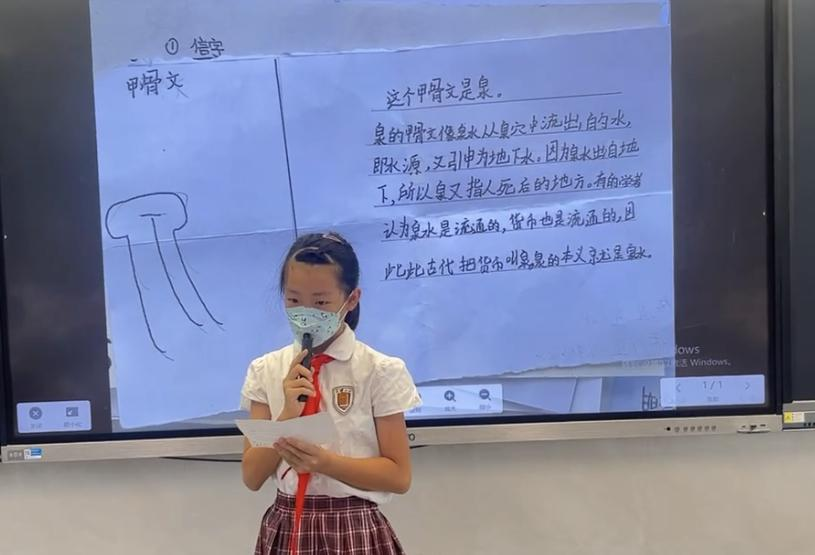 ① 信字
甲骨文
这个甲骨文是泉。
泉的甲骨文像泉水从泉穴中流出,白的水,
即水源,又引申为地下水。因为泉水出自地
下,所以泉又指人死后的地方。有的学者
认为泉水是流通的,货币也是流通的,因
此此古代把货币叫泉,泉的本义就是泉水。
1/1
Windows。